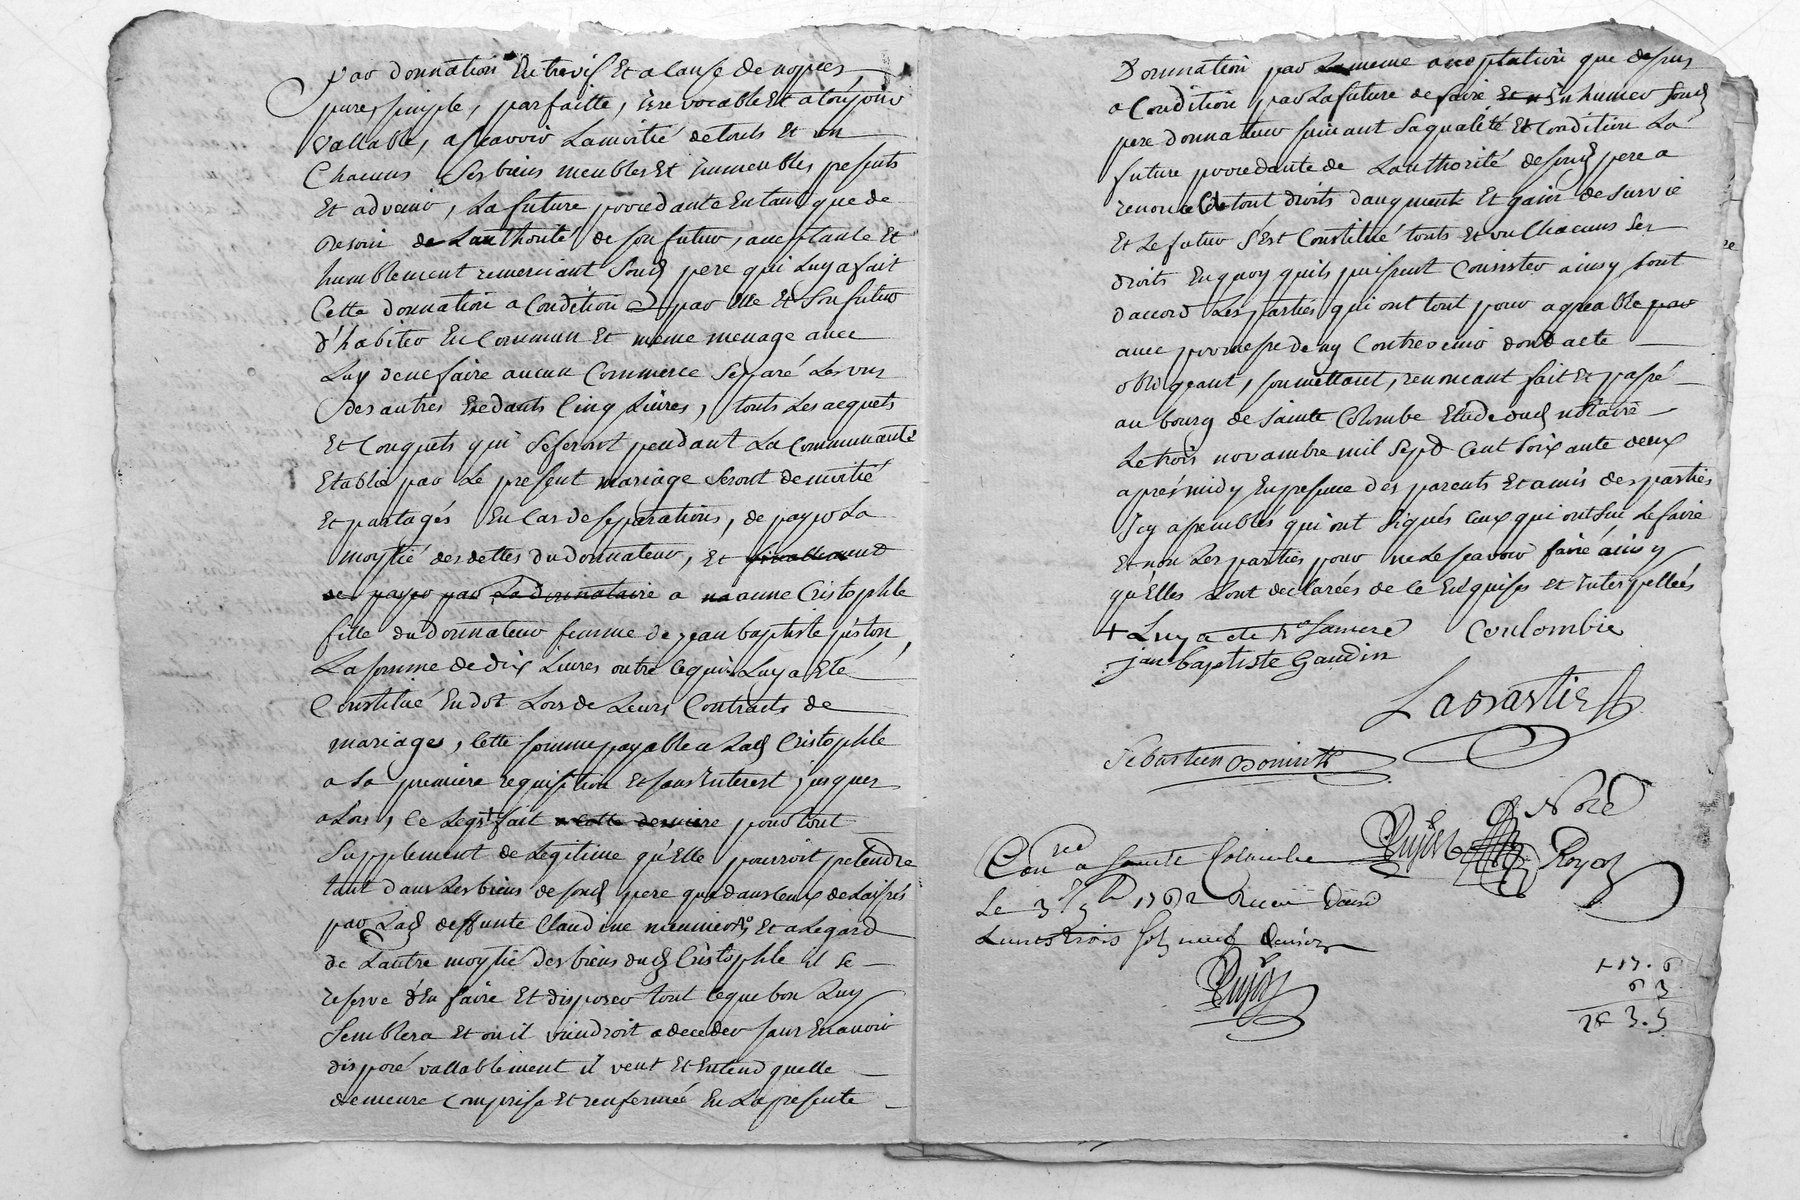 par donnation Entrevif Et a Cause de nopces
pure, simple, parfaitte, irrevocable Et a toujour
vallable, a scavoir La moitié de touts Et un
Chacuns Ses biens meubles Et immeubles presents
Et advenir, La future procedante En tant que de
besoin de L'authorité de son futur, acceptante Et
humblement remerciant Sond pere qui Luy a fait
Cette donnation a Condition par Elle Et Son futur
d'habiter En Commun Et même menage avec
Luy de ne faire aucun Commerce Separé Les uns
des autres Exedants Cinq Livres, touts Les acquets
Et Conquets qui Se feront pendant La Communauté
Etablie par Le present mariage Seront de moitié
Et partagés En Cas de separations, de payer La
moytié des dettes du donnateur, Et finallement
de payer par La donnataire a anne Cristophle
fille du donnateur femme de jean baptiste piston,
La somme de dix Livres outre ce qui Luy a Eté
Constitué En dot Lors de Leurs Contracts de
mariage, Cette somme payable a Lad Cristophle
a Sa premiere requisition Et sans Interest jusques
alors, Ce Legs fait a cette derniere pour tout
Supplement de Legitime qu'Elle pourroit pretendre
tant dans Les biens de sond pere que dans Ceux de Laissés
par Lad deffunte Claudine meunier, Et a Legard
de L'autre moytié des biens dud Cristophle il se
reserve d'En faire Et disposer tout ce que bon Luy
Semblera Et ou il viendroit a deceder sans En avoir
disposé vallablement il veut Et Entend quelle
demeure Comprise Et renfermée En La presente
Donnation par La même acceptation que dessus
a Condition par La future de faire Inhumer Sond
pere donnateur suivant Sa qualité Et Condition La
future procedante de L'authorité de sond pere a
renoncé de tout droits d'augment Et gain de survie
Et Le futur S'Est Constitué touts Et un Chacuns Ses
droits En quoy quils puissent Consister ainsy Sont
d'accord Les parties qui ont tout pour agreable par
avec promesse de ny Contrevenir dont acte
obligeant, soumettant, renoncant fait Et passé
au bourg de Sainte Colombe Etude dud notaire
Le trois novambre mil Sept Cent Soixante deux
aprés midy En presence des parents Et amis des parties
Icy assemblés qui ont Signés Ceux qui ont Sçu Le faire
Et non Les parties pour ne Le sçavoir faire ainsy
qu'Elles Sont declarées de Ce Enquises Et Interpellées
jan baptiste Gaudin Coulombie
Labrastie
Sebastien
Noré
Con^{rlé} a Sainte Colombe Royal
Le 3 9bre 1762 Receu
Livres trois Sols neuf deniers
1 17 . 6
6 3
2 3 . 9